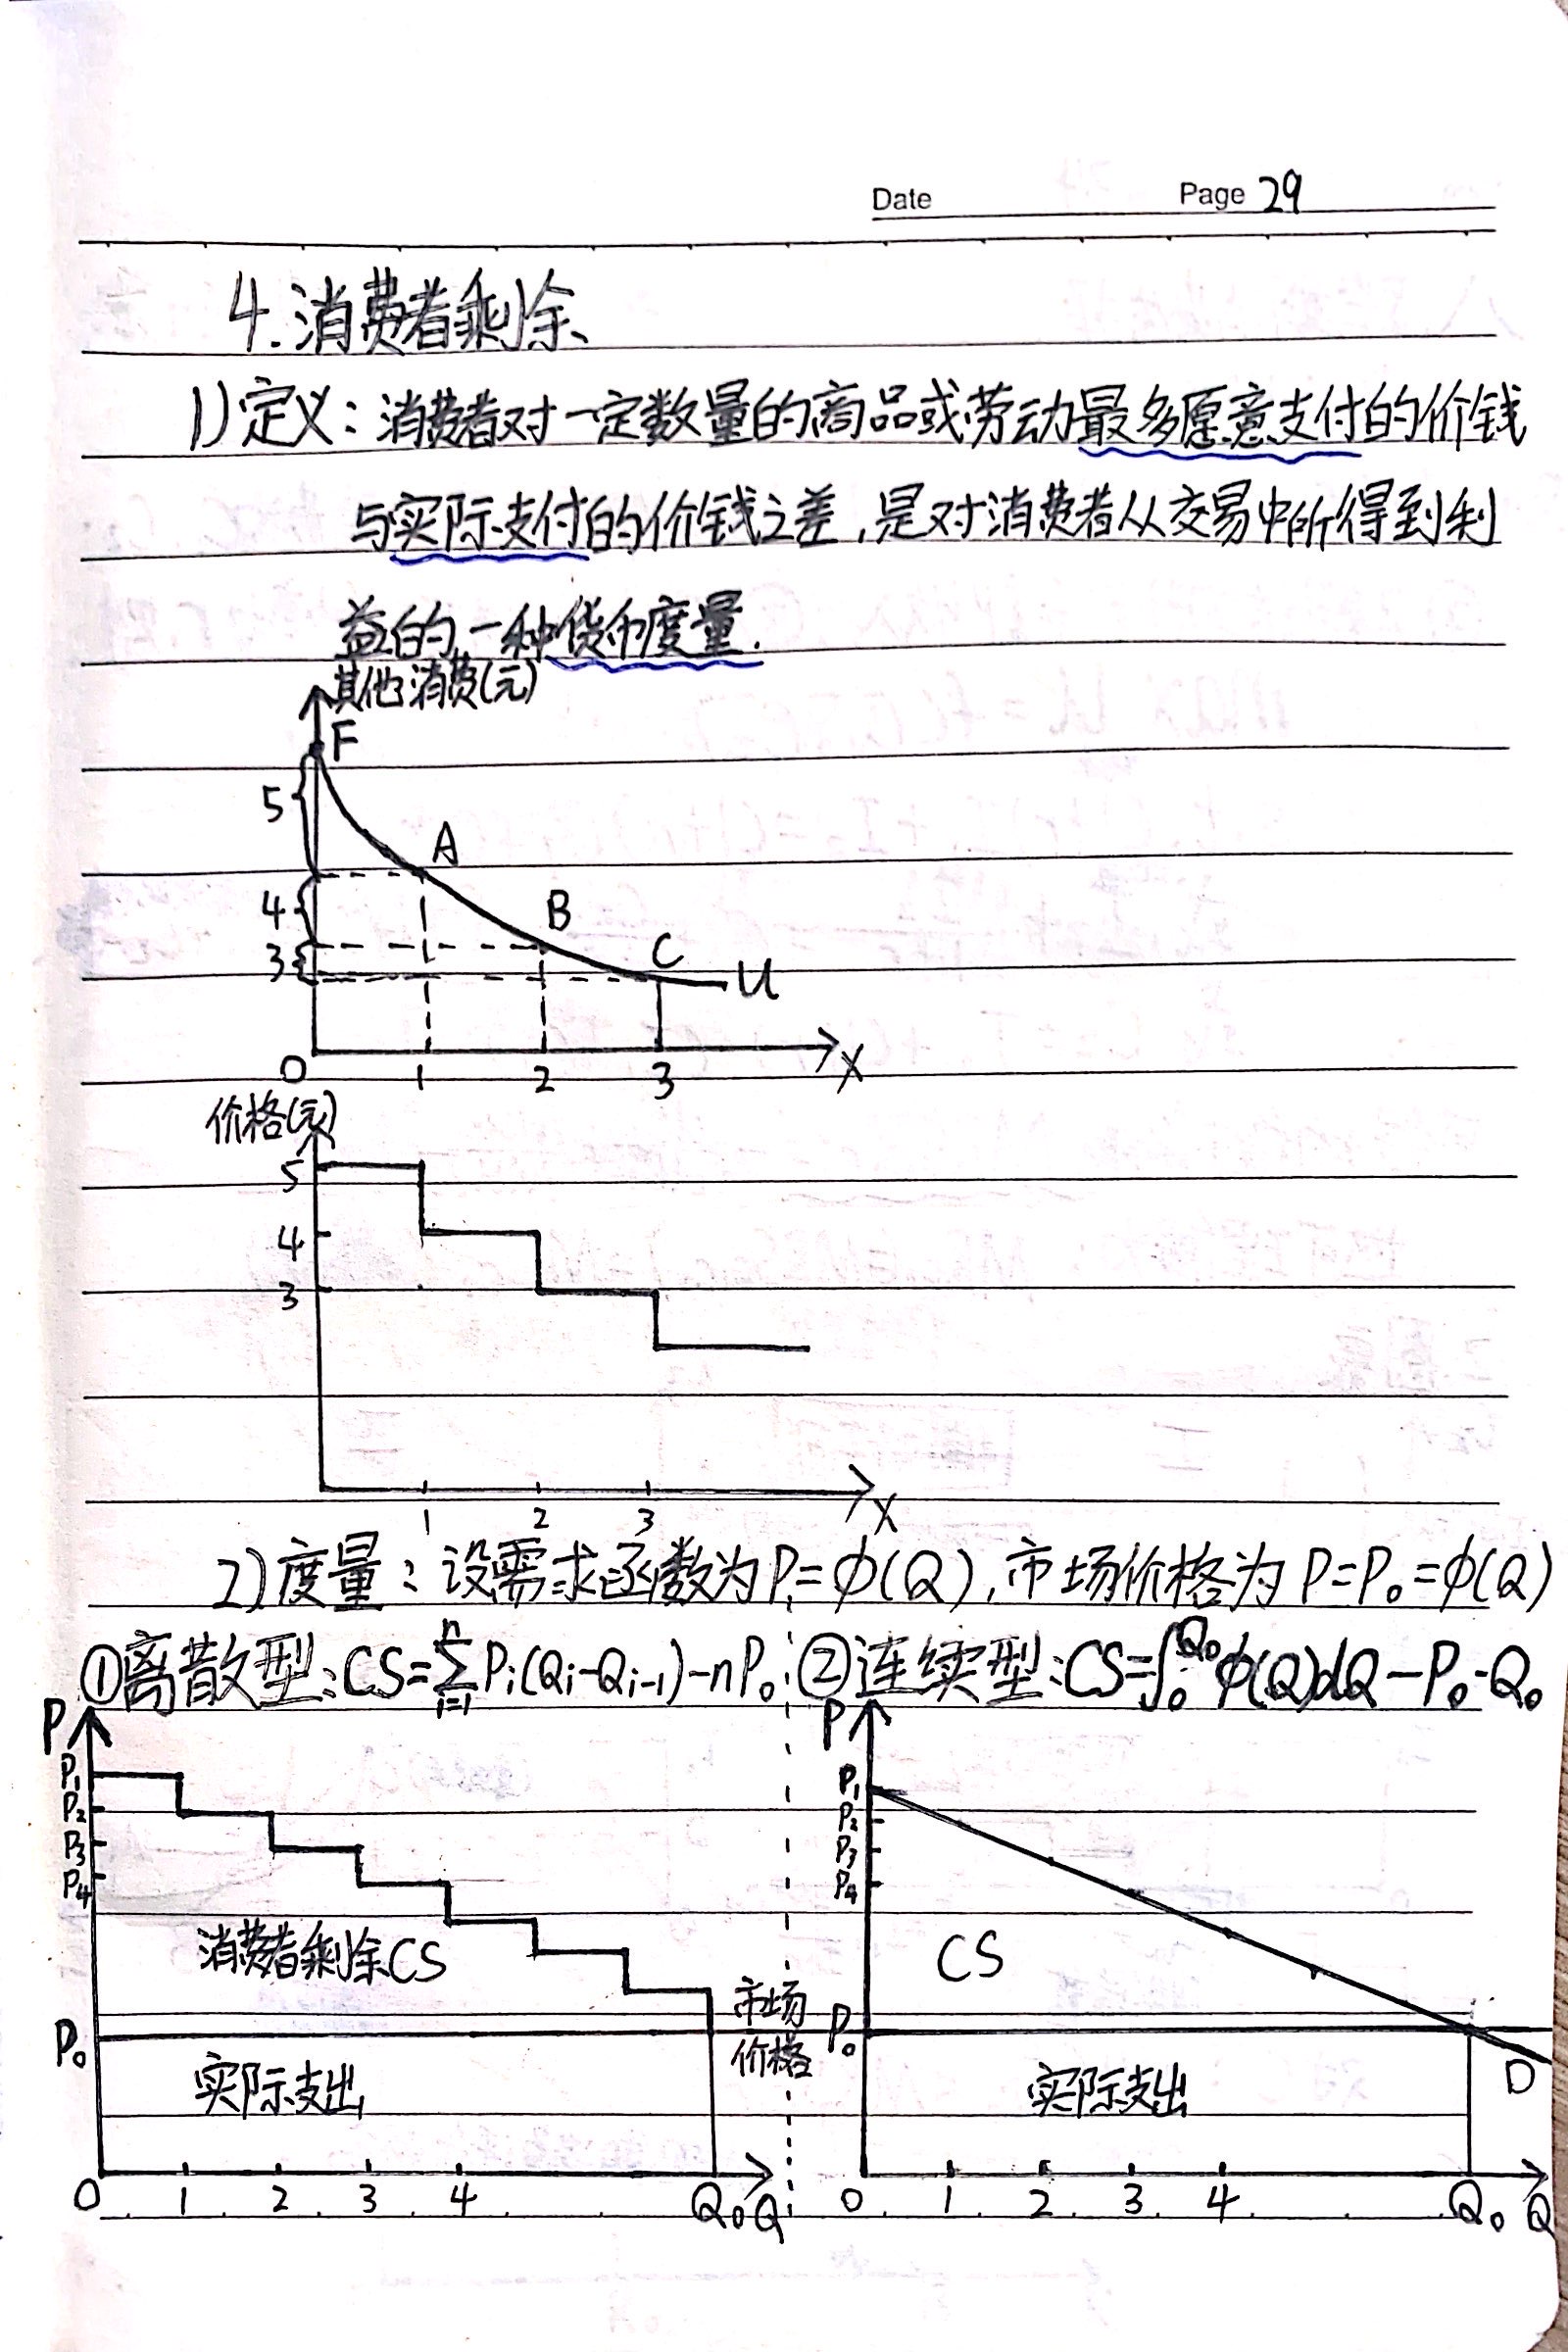 Date Page 29
4.消费者剩余
1)定义：消费者对一定数量的商品或劳动最多愿意支付的价钱
与实际支付的价钱之差,是对消费者从交易中所得到利
益的一种货币度量.
其他消费(元)
F
5
A
4
B
3
C
U
O 1 2 3 X
价格(元)
5
4
3
1 2 3 X
2)度量：设需求函数为P=φ(Q),市场价格为P=P₀=φ(Q)
①离散型:CS=∑ⁿᵢ₌₁Pᵢ(Qᵢ-Qᵢ₋₁)-nP₀ ②连续型:CS=∫₀^Q₀ φ(Q)dQ-P₀·Q₀
P
P₁
P₂
P₃
P₄
消费者剩余CS
市场
价格
P₀
实际支出
O 1 2 3 4 Q₀ Q
P
P₁
P₂
P₃
P₄
CS
P₀
D
实际支出
O 1 2 3 4 Q₀ Q